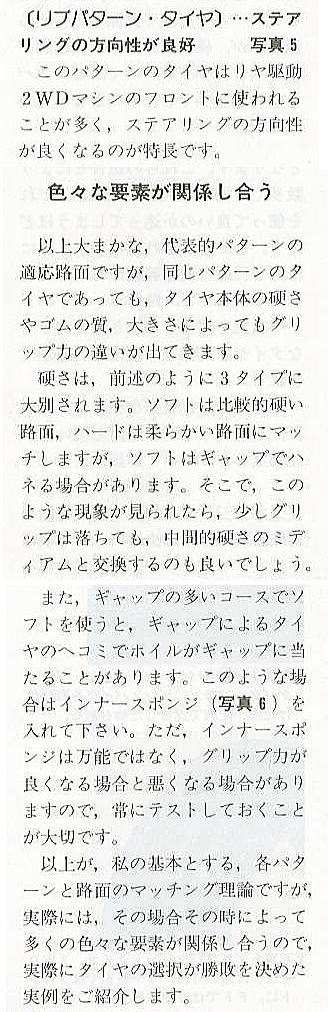 〔リブパターン・タイヤ〕…ステア
リングの方向性が良好　　写真５
　このパターンのタイヤはリヤ駆動
２WDマシンのフロントに使われる
ことが多く，ステアリングの方向性
が良くなるのが特長です。
色々な要素が関係し合う
　以上大まかな，代表的パターンの
適応路面ですが，同じパターンのタ
イヤであっても，タイヤ本体の硬さ
やゴムの質，大きさによってもグリ
ップ力の違いが出てきます。
　硬さは，前述のように３タイプに
大別されます。ソフトは比較的硬い
路面，ハードは柔らかい路面にマッ
チしますが，ソフトはギャップでハ
ネる場合があります。そこで，この
ような現象が見られたら，少しグリ
ップは落ちても，中間的硬さのミデ
ィアムと交換するのも良いでしょう。
　また，ギャップの多いコースでソ
フトを使うと，ギャップによるタイ
ヤのヘコミでホイルがギャップに当
たることがあります。このような場
合はインナースポンジ（写真６）を
入れて下さい。ただ，インナースポ
ンジは万能ではなく，グリップ力が
良くなる場合と悪くなる場合があり
ますので，常にテストしておくこと
が大切です。
　以上が，私の基本とする，各パタ
ーンと路面のマッチング理論ですが，
実際には，その場合その時によって
多くの色々な要素が関係し合うので，
実際にタイヤの選択が勝敗を決めた
実例をご紹介します。